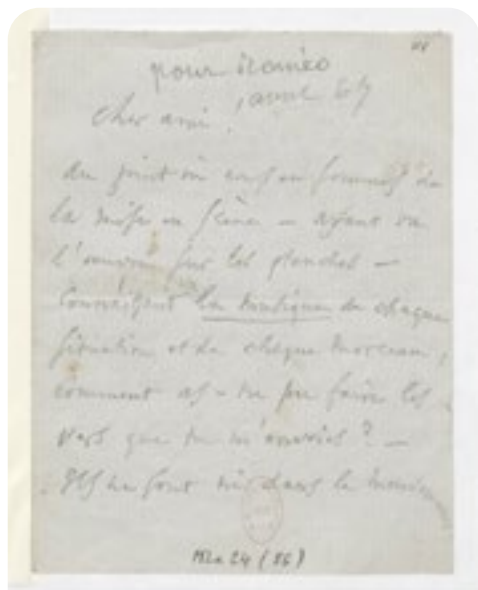 pour Roméo
avril 67
Cher ami,
Au point où nous en sommes de
la mise en scène — ayant vu
l'ouvrage sur les planches —
connaissant la musique de chaque
situation et de chaque morceau,
comment as-tu pu faire les
vers que tu m'envoies ? —
Ils ne sont ni dans le
NLa 24 (86)